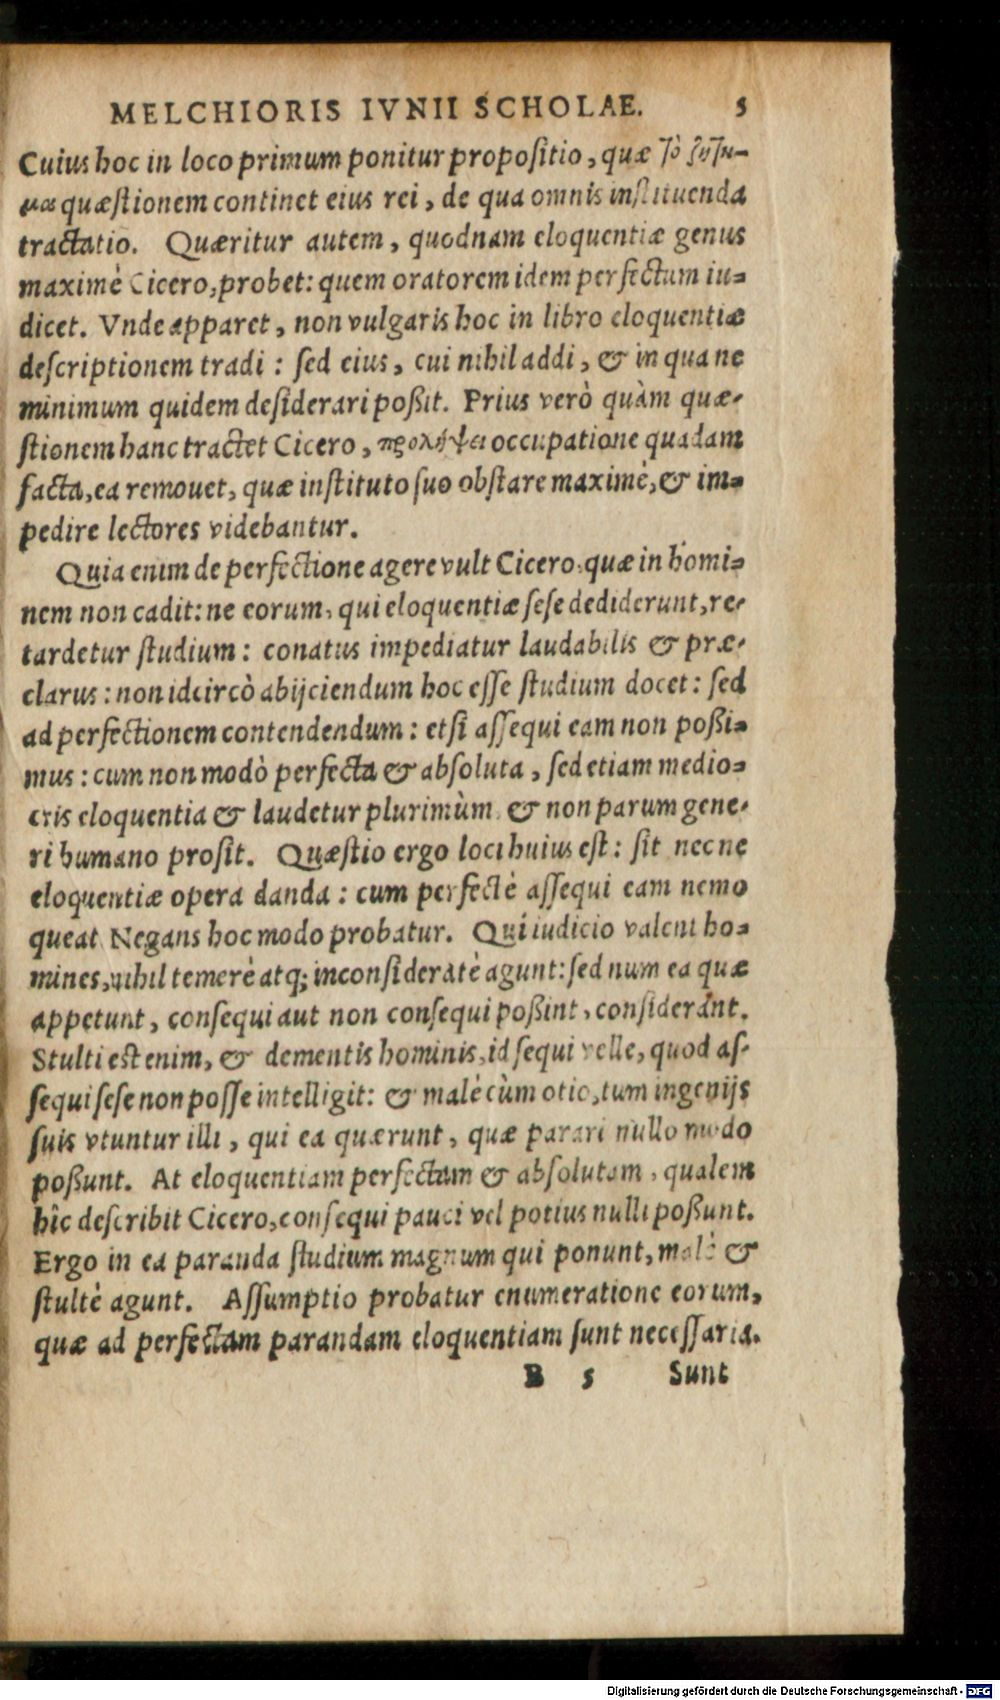 MELCHIORIS IVNII SCHOLAE. 5
Cuius hoc in loco primum ponitur propositio, quæ τὸ ζήτη-
μα quæstionem continet eius rei, de qua omnis instituenda
tractatio. Quæritur autem, quodnam eloquentiæ genus
maximè Cicero, probet: quem oratorem idem perfectum iu-
dicet. Vnde apparet, non vulgaris hoc in libro eloquentiæ
descriptionem tradi: sed eius, cui nihil addi, & in qua ne
minimum quidem desiderari poßit. Prius verò quàm quæ-
stionem hanc tractet Cicero, προλήψει occupatione quadam
facta, ea remouet, quæ instituto suo obstare maximè, & im-
pedire lectores videbantur.
Quia enim de perfectione agere vult Cicero, quæ in homi-
nem non cadit: ne eorum, qui eloquentiæ sese dediderunt, re-
tardetur studium: conatus impediatur laudabilis & præ-
clarus: non idcircò abijciendum hoc esse studium docet: sed
ad perfectionem contendendum: etsi assequi eam non poßi-
mus: cum non modò perfecta & absoluta, sed etiam medio-
cris eloquentia & laudetur plurimùm & non parum gene-
ri humano prosit. Quæstio ergo loci huius est: sit necne
eloquentiæ opera danda: cum perfectè assequi eam nemo
queat. Negans hoc modo probatur. Qui iudicio valent ho-
mines, nihil temerè atq; inconsideratè agunt: sed num ea quæ
appetunt, consequi aut non consequi poßint, considerant.
Stulti est enim, & dementis hominis, id sequi velle, quod as-
sequi sese non posse intelligit: & malè cùm otio, tum ingenijs
suis vtuntur illi, qui ea quærunt, quæ parari nullo modo
poßunt. At eloquentiam perfectam & absolutam, qualem
hîc describit Cicero, consequi pauci vel potius nulli poßunt.
Ergo in ea paranda studium magnum qui ponunt, malè &
stultè agunt. Assumptio probatur enumeratione eorum,
quæ ad perfectam parandam eloquentiam sunt necessaria.
B 5 Sunt
Digitalisierung gefördert durch die Deutsche Forschungsgemeinschaft - DFG